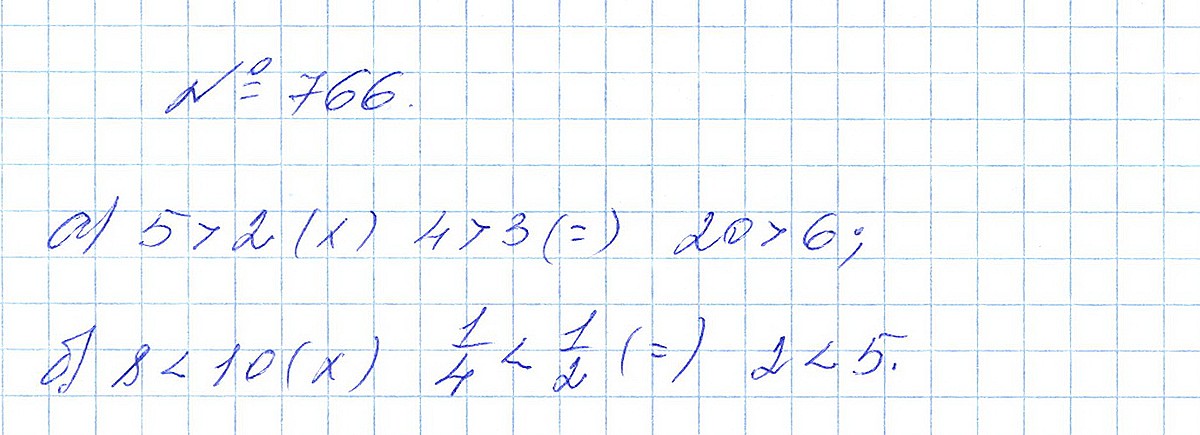 № 766.
а) 5 > 2 (х) 4 > 3 (=) 20 > 6;
б) 8 < 10 (х) 1/4 < 1/2 (=) 2 < 5.